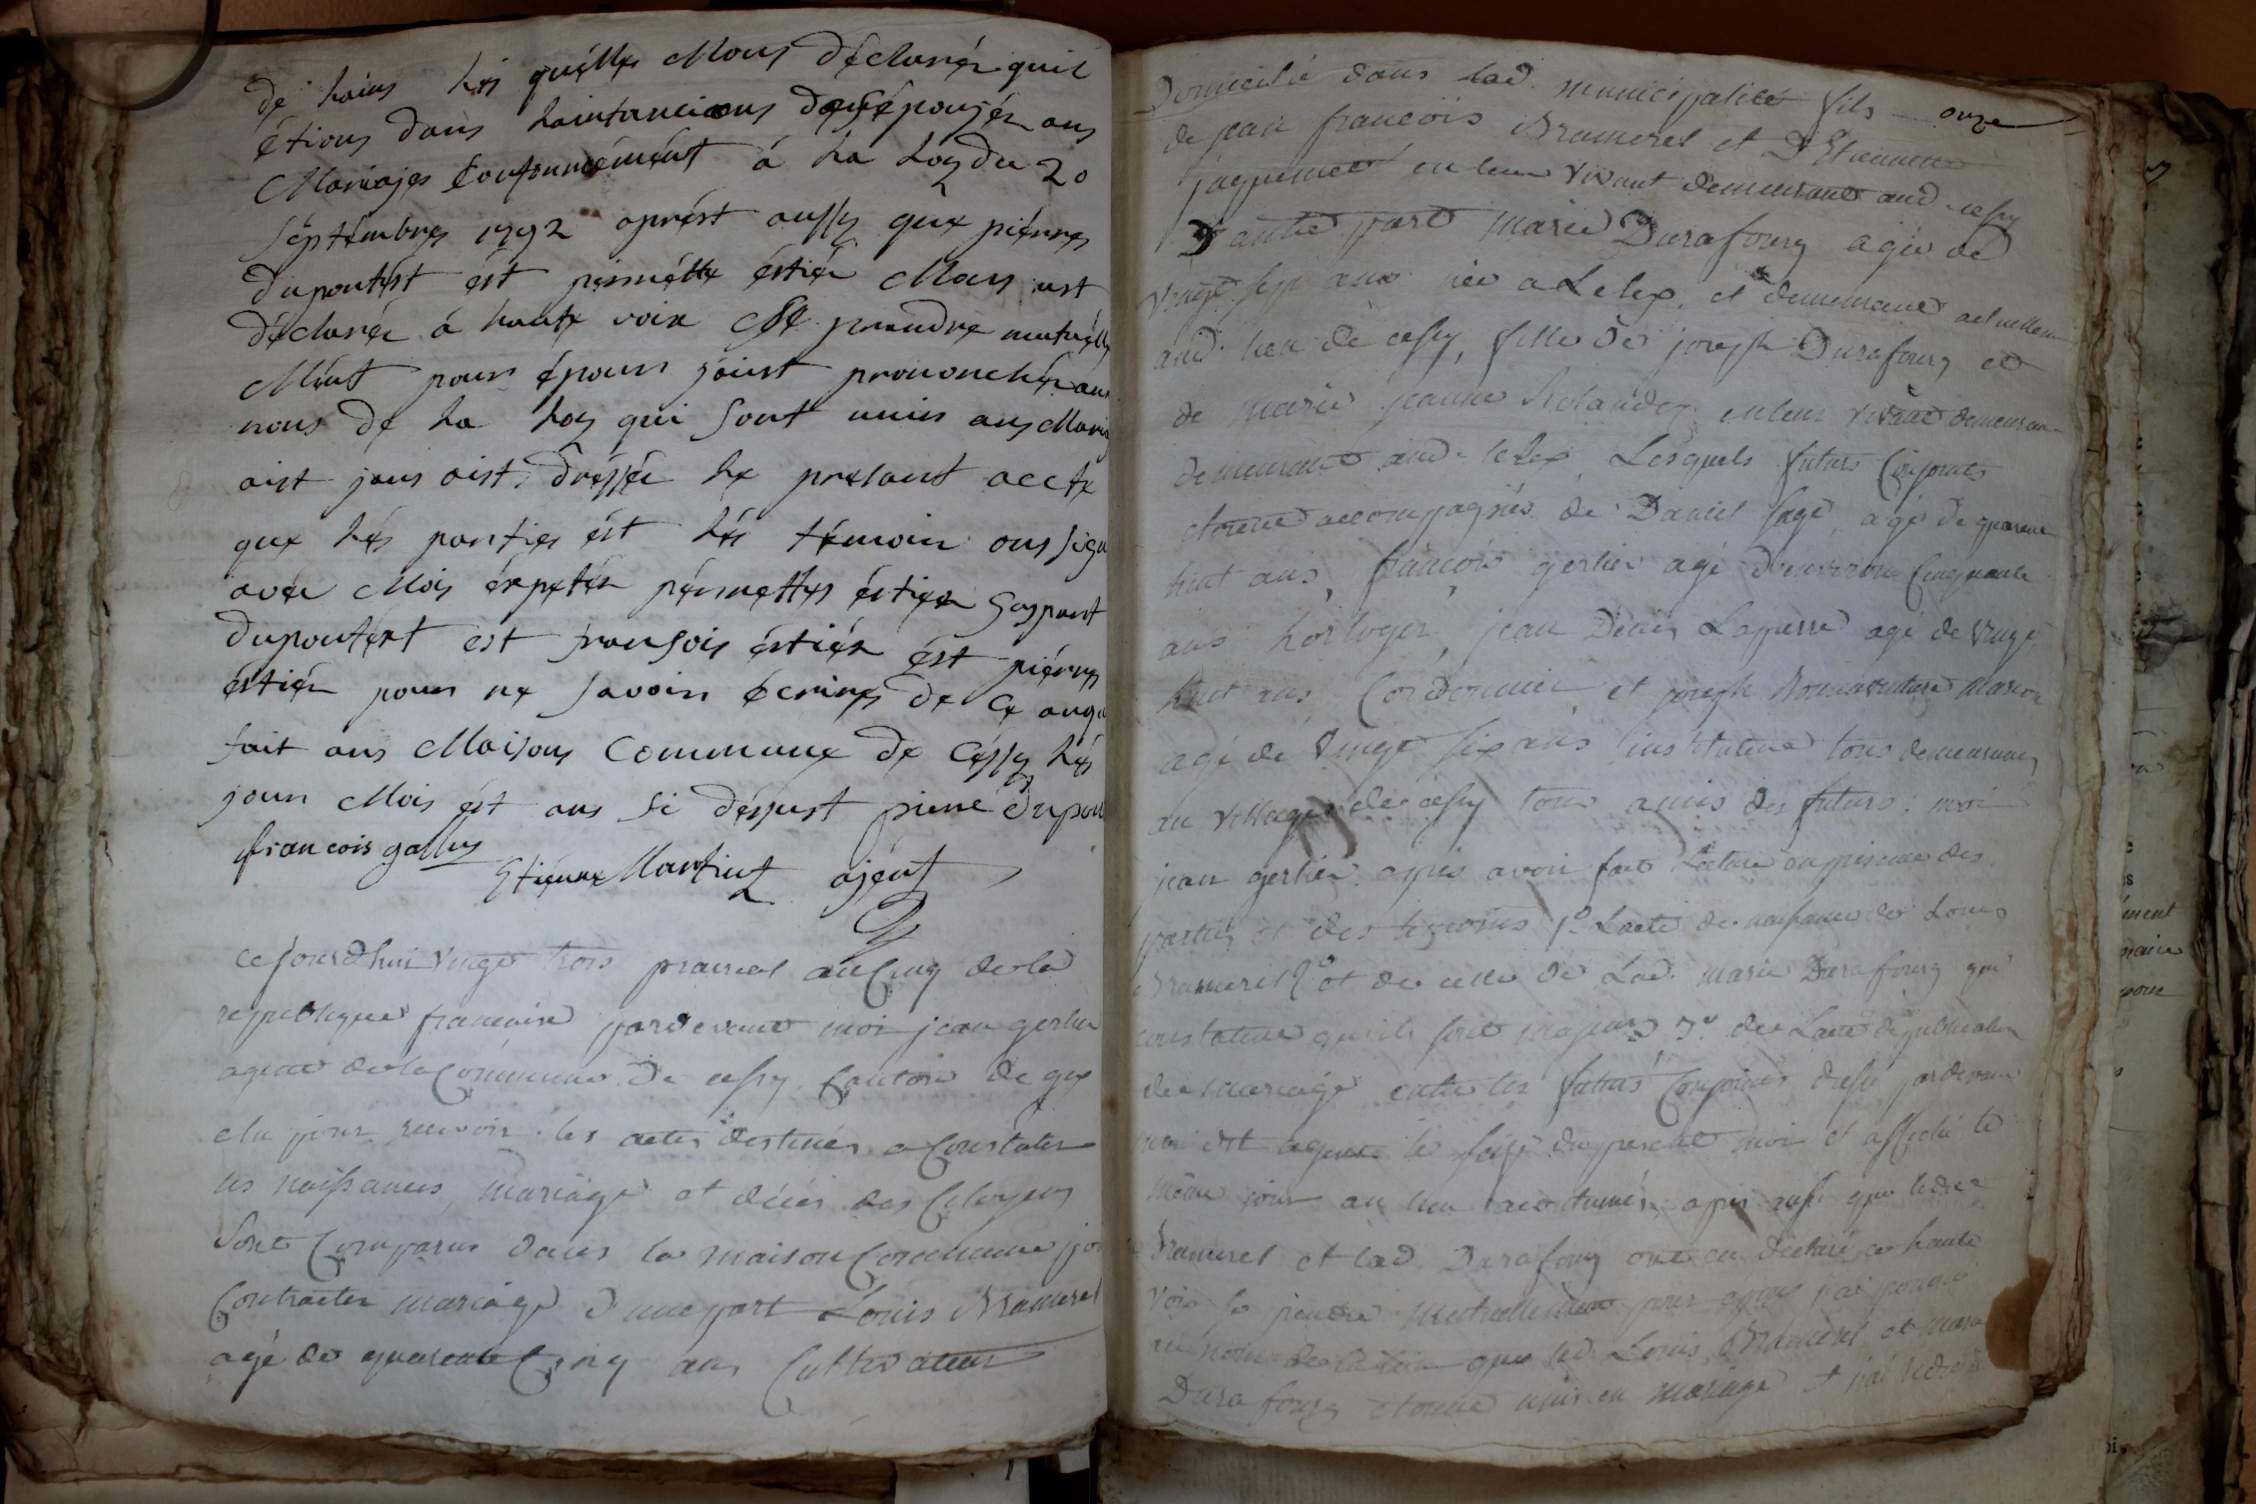 de hains hés quélles Mous déclarér quil
étions dans haintancions des épousér ans
Mariajes Confourmémént á ha hoy du 20
séptémbres 1792 aprést aussy qúe piérres
dupontést ést pérnétte éstiér Mous ust
déclarér á haute voix se prendre mutuélle
Mént pour épous joint prononchér aus
nous de ha hoy qui sont unies ans Mariaj
aist jous aist dréssér he présant accte
que hés parties ést hés témoin ons signé
avéc Mois éxpétér pérnettes éstiér gaspart
dupontért est fransois éstiér ést piérres
éstiér pour ne savoir écrires de ce
fait ans Maisons Commune de Céssy hés
jour Mois ést ans si déssust pierre dupon
francois gallay
Etiénne Martin ajént
Cejourdhui vingt trois prairial an Cinq de la
republique francaise pardevant moi jean gerlier
agent de la Commune de cessy Canton de gex
elu pour recevoir les actes destinés a Constater
les naissances, mariage et décés des Citoyens
Sont Comparus dans la maison Commune po
Contracter mariage d'une part Louis Brameret
agé de quarante Cinq ans Cultivateur
onze
Domicilié dans lad. municipalité fils
de jean francois Brameret et D'Etiennette
jaquemet en leur vivant demeurant aud. cessy
D'autre part marie Durafourg agée de
vingt sept ans née a Lelex, et demeurant actuellem
aud. lieu de cessy, fille de joseph Durafourg et
de marie jeanne Rolandez en leur vivant demeuran
demeurant aud. lelex Lesquels futurs Conjoints
etoient accompagnés de Daniel sage agé de quarante
huit ans, francois gerlier agé d'environ Cinquante
ans horloger, jean Denis Laperre agé de vingt
huit ans Cordonnier et joseph Bonnaventure
agé de vingt six ans instituteur tous demeurans
au village de cessy tous amis des futurs: moi
jean gerlier après avoir fait Lecture en presence des
parties et des temoins 1o. Lacte de naissance de Louis
Brameret 2o et de celle de Lad. marie Durafourg qui
constatent quils sont majeurs 3o. de Lacte de publication
de mariage entre les futurs Conjoints dressé pardevant
moi dit agent le seize du present moi et affiché le
même jour au lieu accoutumé, après aussi que led.
Brameret et lad. Durafourg ont eu déclaré a haute
voix se prendre mutuellement pour epous j'ai prononcé
au nom de la loi que led. Louis Brameret et marie
Durafourg etoient unis en mariage et j'ai